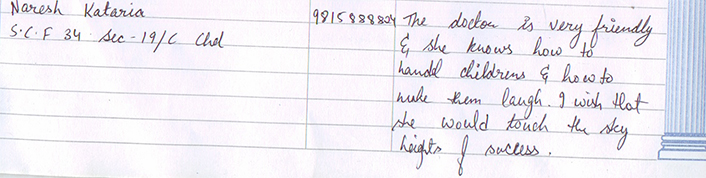 Naresh Kataria 9815888804 The doctor is very friendly
S.C.F 34 Sec-19/C Chd & she knows how to
handel childrens & how to
make them laugh. I wish that
she would touch the sky
heights of success.